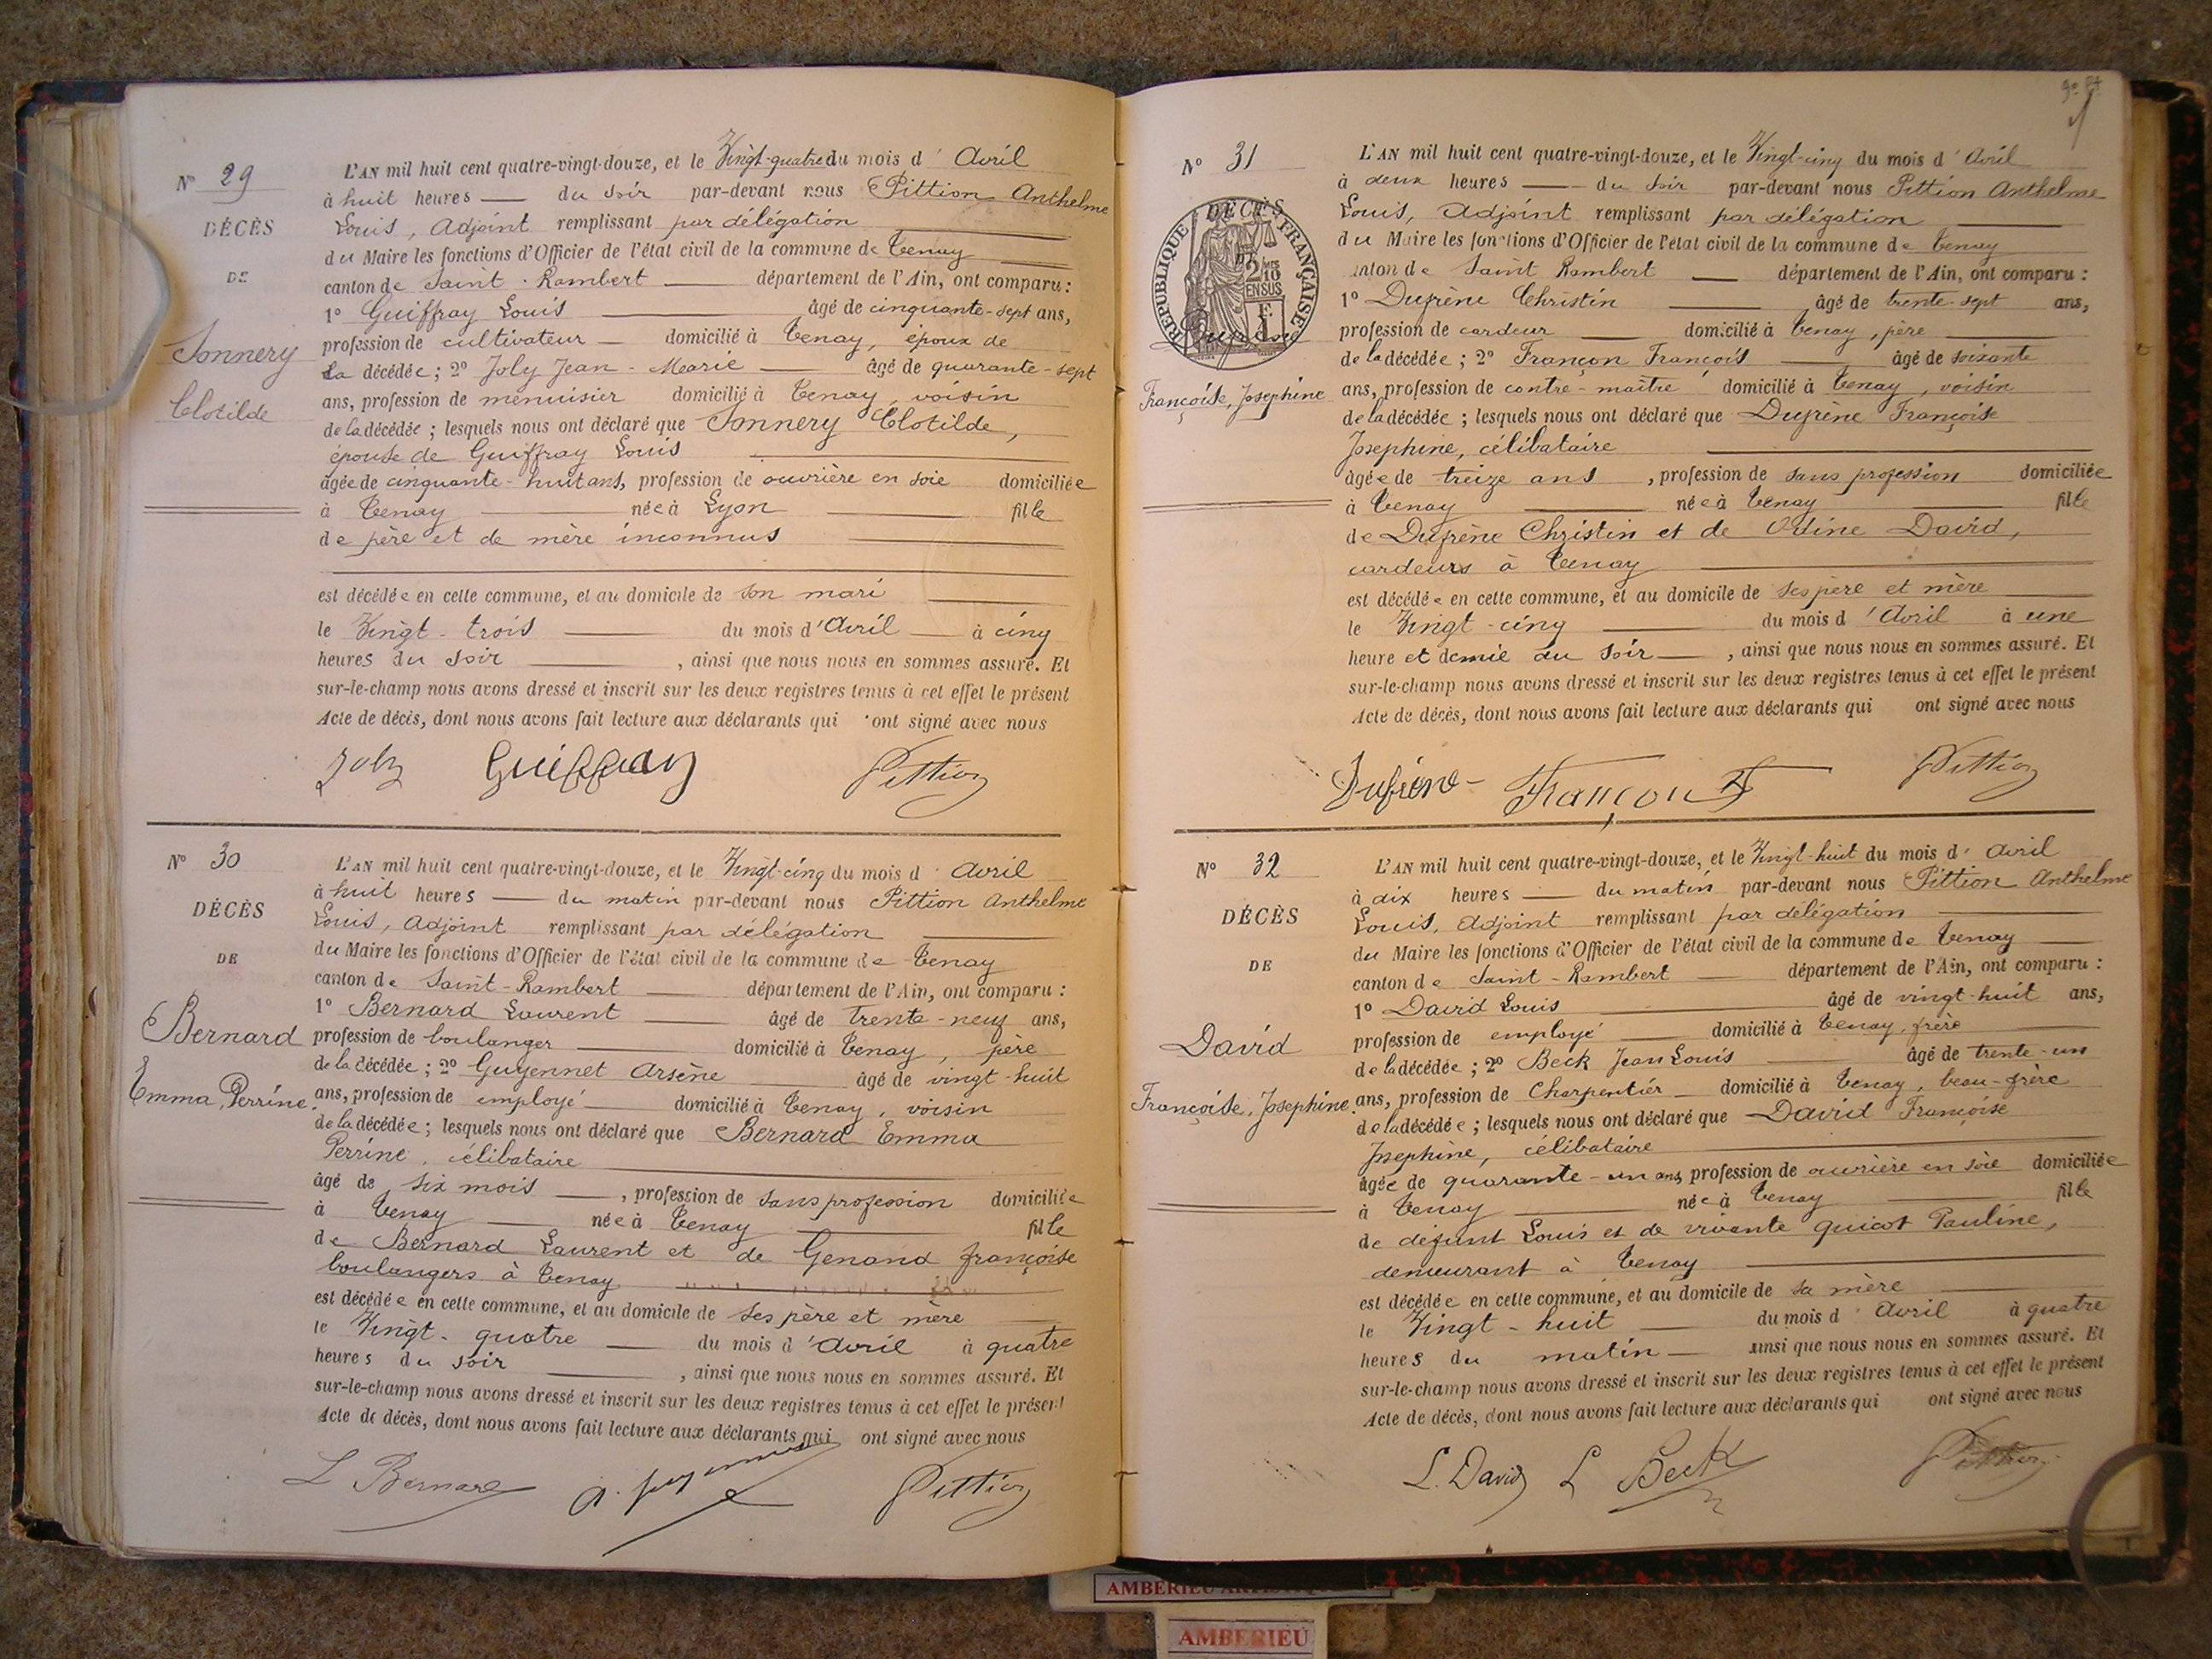 N° 29
DÉCÈS
DE
Sonnery
Clotilde
L'AN mil huit cent quatre-vingt-douze, et le Vingt-quatre du mois d' Avril
à huit heures du soir par-devant nous Pittion Anthelme
Louis, Adjoint remplissant par délégation
du Maire les fonctions d'Officier de l'état civil de la commune de Tenay
canton de Saint-Rambert département de l'Ain, ont comparu :
1° Guiffray Louis âgé de cinquante-sept ans,
profession de cultivateur domicilié à Tenay, époux de
la décédée ; 2° Joly Jean-Marie âgé de quarante-sept
ans, profession de menuisier domicilié à Tenay, voisin
de la décédée ; lesquels nous ont déclaré que Sonnery Clotilde,
épouse de Guiffray Louis
âgée de cinquante-huit ans, profession de ouvrière en soie domiciliée
à Tenay née à Lyon fille
de père et de mère inconnus
est décédée en cette commune, et au domicile de son mari
le Vingt-trois du mois d'Avril à cinq
heures du soir, ainsi que nous nous en sommes assuré. Et
sur-le-champ nous avons dressé et inscrit sur les deux registres tenus à cet effet le présent
Acte de décès, dont nous avons fait lecture aux déclarants qui ont signé avec nous
Joly Guiffray Pittion
N° 30
DÉCÈS
DE
Bernard
Emma, Perrine.
L'AN mil huit cent quatre-vingt-douze, et le Vingt-cinq du mois d' Avril
à huit heures du matin par-devant nous Pittion Anthelme
Louis, Adjoint remplissant par délégation
du Maire les fonctions d'Officier de l'état civil de la commune de Tenay
canton de Saint-Rambert département de l'Ain, ont comparu :
1° Bernard Laurent âgé de trente-neuf ans,
profession de boulanger domicilié à Tenay, père
de la décédée ; 2° Guyennet Arsène âgé de vingt-huit
ans, profession de employé domicilié à Tenay, voisin
de la décédée ; lesquels nous ont déclaré que Bernard Emma
Perrine, célibataire
âgé de six mois, profession de sans profession domiciliée
à Tenay née à Tenay fille
de Bernard Laurent et de Genand françoise
boulangers à Tenay
est décédée en cette commune, et au domicile de ses père et mère
le Vingt-quatre du mois d'Avril à quatre
heures du soir, ainsi que nous nous en sommes assuré. Et
sur-le-champ nous avons dressé et inscrit sur les deux registres tenus à cet effet le présent
Acte de décès, dont nous avons fait lecture aux déclarants qui ont signé avec nous
L Bernard A. Guyennet Pittion
N° 31
DÉCÈS
RÉPUBLIQUE FRANÇAISE
2/10
EN SUS
Dufrène
Françoise, Josephine
L'AN mil huit cent quatre-vingt-douze, et le Vingt-cinq du mois d'Avril
à deux heures du soir par-devant nous Pittion Anthelme
Louis, Adjoint remplissant par délégation
du Maire les fonctions d'Officier de l'état civil de la commune de Tenay
canton de Saint Rambert département de l'Ain, ont comparu :
1° Dufrène Christin âgé de trente-sept ans,
profession de cardeur domicilié à Tenay, père
de la décédée ; 2° Françon François âgé de soixante
ans, profession de contre-maître domicilié à Tenay, voisin
de la décédée ; lesquels nous ont déclaré que Dufrène Françoise
Josephine, célibataire
âgée de treize ans, profession de sans profession domiciliée
à Tenay née à Tenay fille
de Dufrène Christin et de Odine David,
cardeurs à Tenay
est décédée en cette commune, et au domicile de ses père et mère
le Vingt-cinq du mois d'Avril à une
heure et demie du soir, ainsi que nous nous en sommes assuré. Et
sur-le-champ nous avons dressé et inscrit sur les deux registres tenus à cet effet le présent
Acte de décès, dont nous avons fait lecture aux déclarants qui ont signé avec nous
Dufrène Françon Pittion
N° 32
DÉCÈS
DE
David
Françoise, Josephine.
L'AN mil huit cent quatre-vingt-douze, et le Vingt-huit du mois d' Avril
à dix heures du matin par-devant nous Pittion Anthelme
Louis, Adjoint remplissant par délégation
du Maire les fonctions d'Officier de l'état civil de la commune de Tenay
canton de Saint-Rambert département de l'Ain, ont comparu :
1° David Louis âgé de vingt-huit ans,
profession de employé domicilié à Tenay, frère
de la décédée ; 2° Beck Jean Louis âgé de trente-un
ans, profession de Charpentier domicilié à Tenay, beau-frère
de la décédée ; lesquels nous ont déclaré que David Françoise
Josephine, célibataire
âgée de quarante-un ans, profession de ouvrière en soie domiciliée
à Tenay née à Tenay fille
de défunt Louis et de vivante quicot Pauline,
demeurant à Tenay
est décédée en cette commune, et au domicile de sa mère
le Vingt-huit du mois d'Avril à quatre
heures du matin ainsi que nous nous en sommes assuré. Et
sur-le-champ nous avons dressé et inscrit sur les deux registres tenus à cet effet le présent
Acte de décès, dont nous avons fait lecture aux déclarants qui ont signé avec nous
L. David L Beck Pittion
AMBERIEU